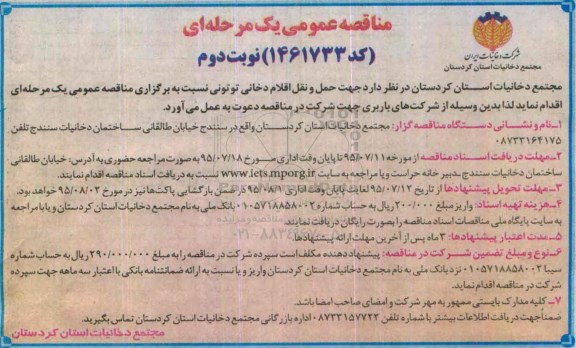 مناقصه عمومی یک مرحله‌ای
(کد ۱۴۶۱۷۳۳) نوبت دوم
شرکت دخانیات ایران
مجتمع دخانیات استان کردستان
مجتمع دخانیات استان کردستان در نظر دارد جهت حمل و نقل اقلام دخانی توتونی نسبت به برگزاری مناقصه عمومی یک مرحله‌ای
اقدام نماید لذا بدین وسیله از شرکت‌های باربری جهت شرکت در مناقصه دعوت به عمل می‌آورد.
۱ـ نام و نشانی دستگاه مناقصه گزار: مجتمع دخانیات استان کردستان واقع در سنندج خیابان طالقانی ساختمان دخانیات سنندج تلفن
۰۸۷۳۳۱۶۴۱۷۵
۲ـ مهلت دریافت اسناد مناقصه: از مورخه ۹۵/۰۷/۱۱ تا پایان وقت اداری مورخ ۹۵/۰۷/۱۸ به صورت مراجعه حضوری به آدرس: خیابان طالقانی
ساختمان دخانیات سنندج ـ دبیر خانه حراست و یا مراجعه به سایت www.iets.mporg.ir نسبت به دریافت اسناد مناقصه اقدام نمایند.
۳ـ مهلت تحویل پیشنهادها: از تاریخ ۹۵/۰۷/۱۲ لغایت پایان وقت اداری ۹۵/۰۸/۰۱ در ضمن بازگشایی پاکت‌ها نیز در مورخ ۹۵/۰۸/۰۲ خواهد بود.
۴ـ هزینه تهیه اسناد: واریز مبلغ ۲۰۰/۰۰۰ ریال به حساب شماره ۰۱۰۵۷۱۸۸۵۸۰۰۲ بانک ملی به نام مجتمع دخانیات استان کردستان و یا با مراجعه
به سایت پایگاه ملی مناقصات اسناد مناقصه را بصورت رایگان دریافت نمایند.
۵ـ مدت اعتبار پیشنهادها: ۳ ماه پس از آخرین مهلت ارائه پیشنهادها.
۶ـ نوع و مبلغ تضمین شرکت در مناقصه: پیشنهاد دهنده مکلف است سپرده شرکت در مناقصه را به مبلغ ۲۹۰/۰۰۰/۰۰۰ ریال به حساب شماره
سیبا ۰۱۰۵۷۱۸۸۵۸۰۰۲ نزد بانک ملی به نام مجتمع دخانیات استان کردستان واریز و یا نسبت به ارائه ضمانتنامه بانکی با اعتبار سه ماهه جهت سپرده
شرکت در مناقصه اقدام نماید.
۷ـ کلیه مدارک بایستی ممهور به مهر شرکت و امضای صاحب امضا باشد.
ضمناً جهت دریافت اطلاعات بیشتر با شماره تلفن ۰۸۷۳۳۱۵۷۷۲۳ اداره بازرگانی مجتمع دخانیات استان کردستان تماس بگیرید.
مجتمع دخانیات استان کردستان